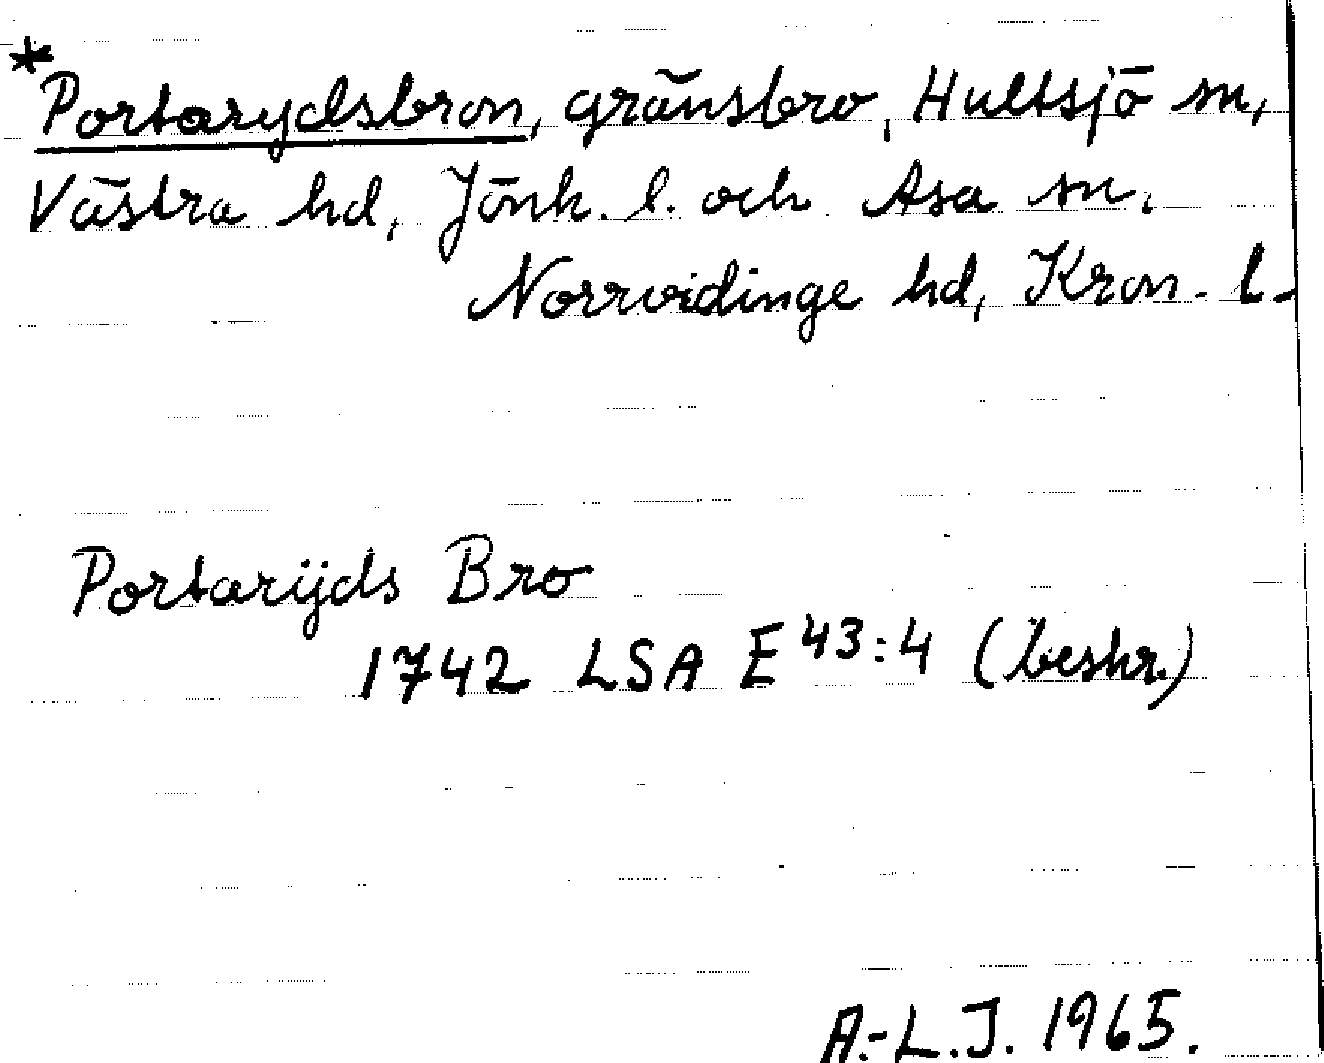 *Portarydsbron, gränsbro, Hultsjö sn,
Västra hd, Jönk. l. och Asa sn,
Norrvidinge hd, Kron. l.
Portarijds Bro
1742 LSA E 43:4 (beskr.)
A.-L.J. 1965.